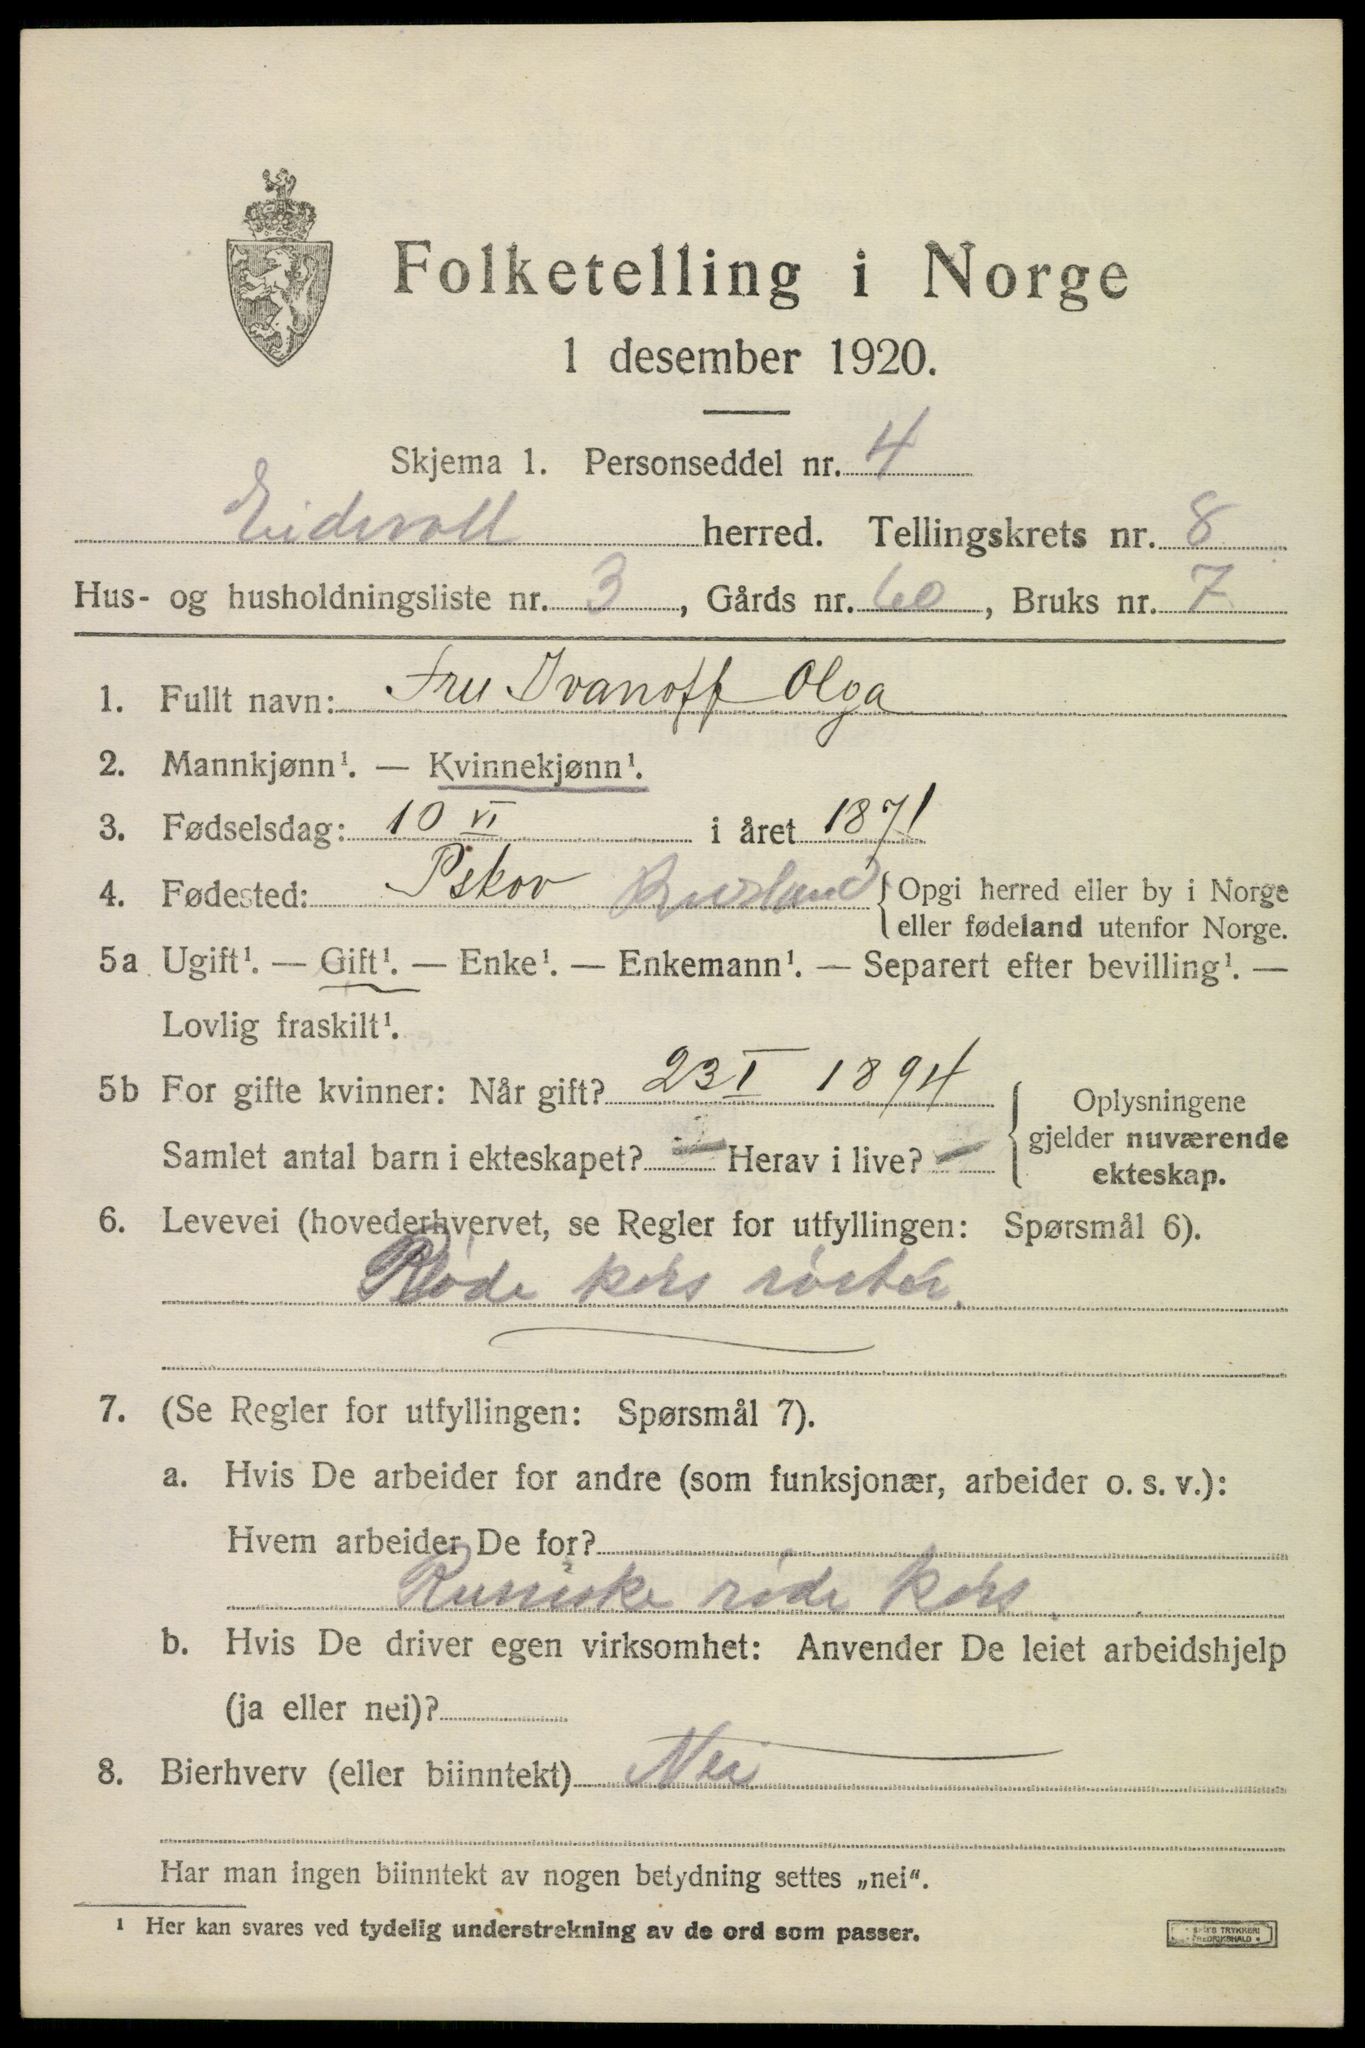 Folketelling i Norge
1 desember 1920.
Skjema 1. Personseddel nr. 4
Eidsvoll herred. Tellingskrets nr. 8
Hus- og husholdningsliste nr. 3, Gårds nr. 60, Bruks nr. 7
1. Fullt navn: Fru Ivanoff Olga
2. Mannkjønn¹. — Kvinnekjønn¹.
3. Fødselsdag: 10 VI i året 1871
4. Fødested: Pskov Rusland { Opgi herred eller by i Norge
eller fødeland utenfor Norge.
5a Ugift¹. — Gift¹. — Enke¹. — Enkemann¹. — Separert efter bevilling¹. —
Lovlig fraskilt¹.
5b For gifte kvinner: Når gift? 23 I 1894
Samlet antal barn i ekteskapet? — Herav i live? —
Oplysningene
gjelder nuværende
ekteskap.
6. Levevei (hovederhvervet, se Regler for utfyllingen: Spørsmål 6).
Røde kors
7. (Se Regler for utfyllingen: Spørsmål 7).
a. Hvis De arbeider for andre (som funksjonær, arbeider o. s. v.):
Hvem arbeider De for?
Russiske røde kors.
b. Hvis De driver egen virksomhet: Anvender De leiet arbeidshjelp
(ja eller nei)?
8. Bierhverv (eller biinntekt) Nei
Har man ingen biinntekt av nogen betydning settes „nei".
¹ Her kan svares ved tydelig understrekning av de ord som passer.
TRYKKERI
FREDRIKSHALD